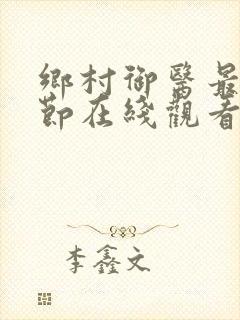 鄉村御醫最
節在綫觀看
李鑫文